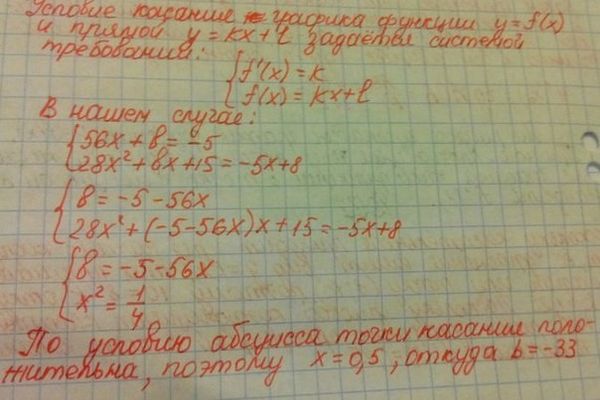 Условие касание графика функции y=f(x)
и прямой y=kx+l задаётся системой
требований:
{f'(x)=k
f(x)=kx+l
В нашем случае:
{56x+8=-5
28x²+8x+15=-5x+8
{8=-5-56x
28x²+(-5-56x)x+15=-5x+8
{8=-5-56x
x²=1/4
По условию абсцисса точки касание поло-
жительна, поэтому x=0,5, откуда b=-33